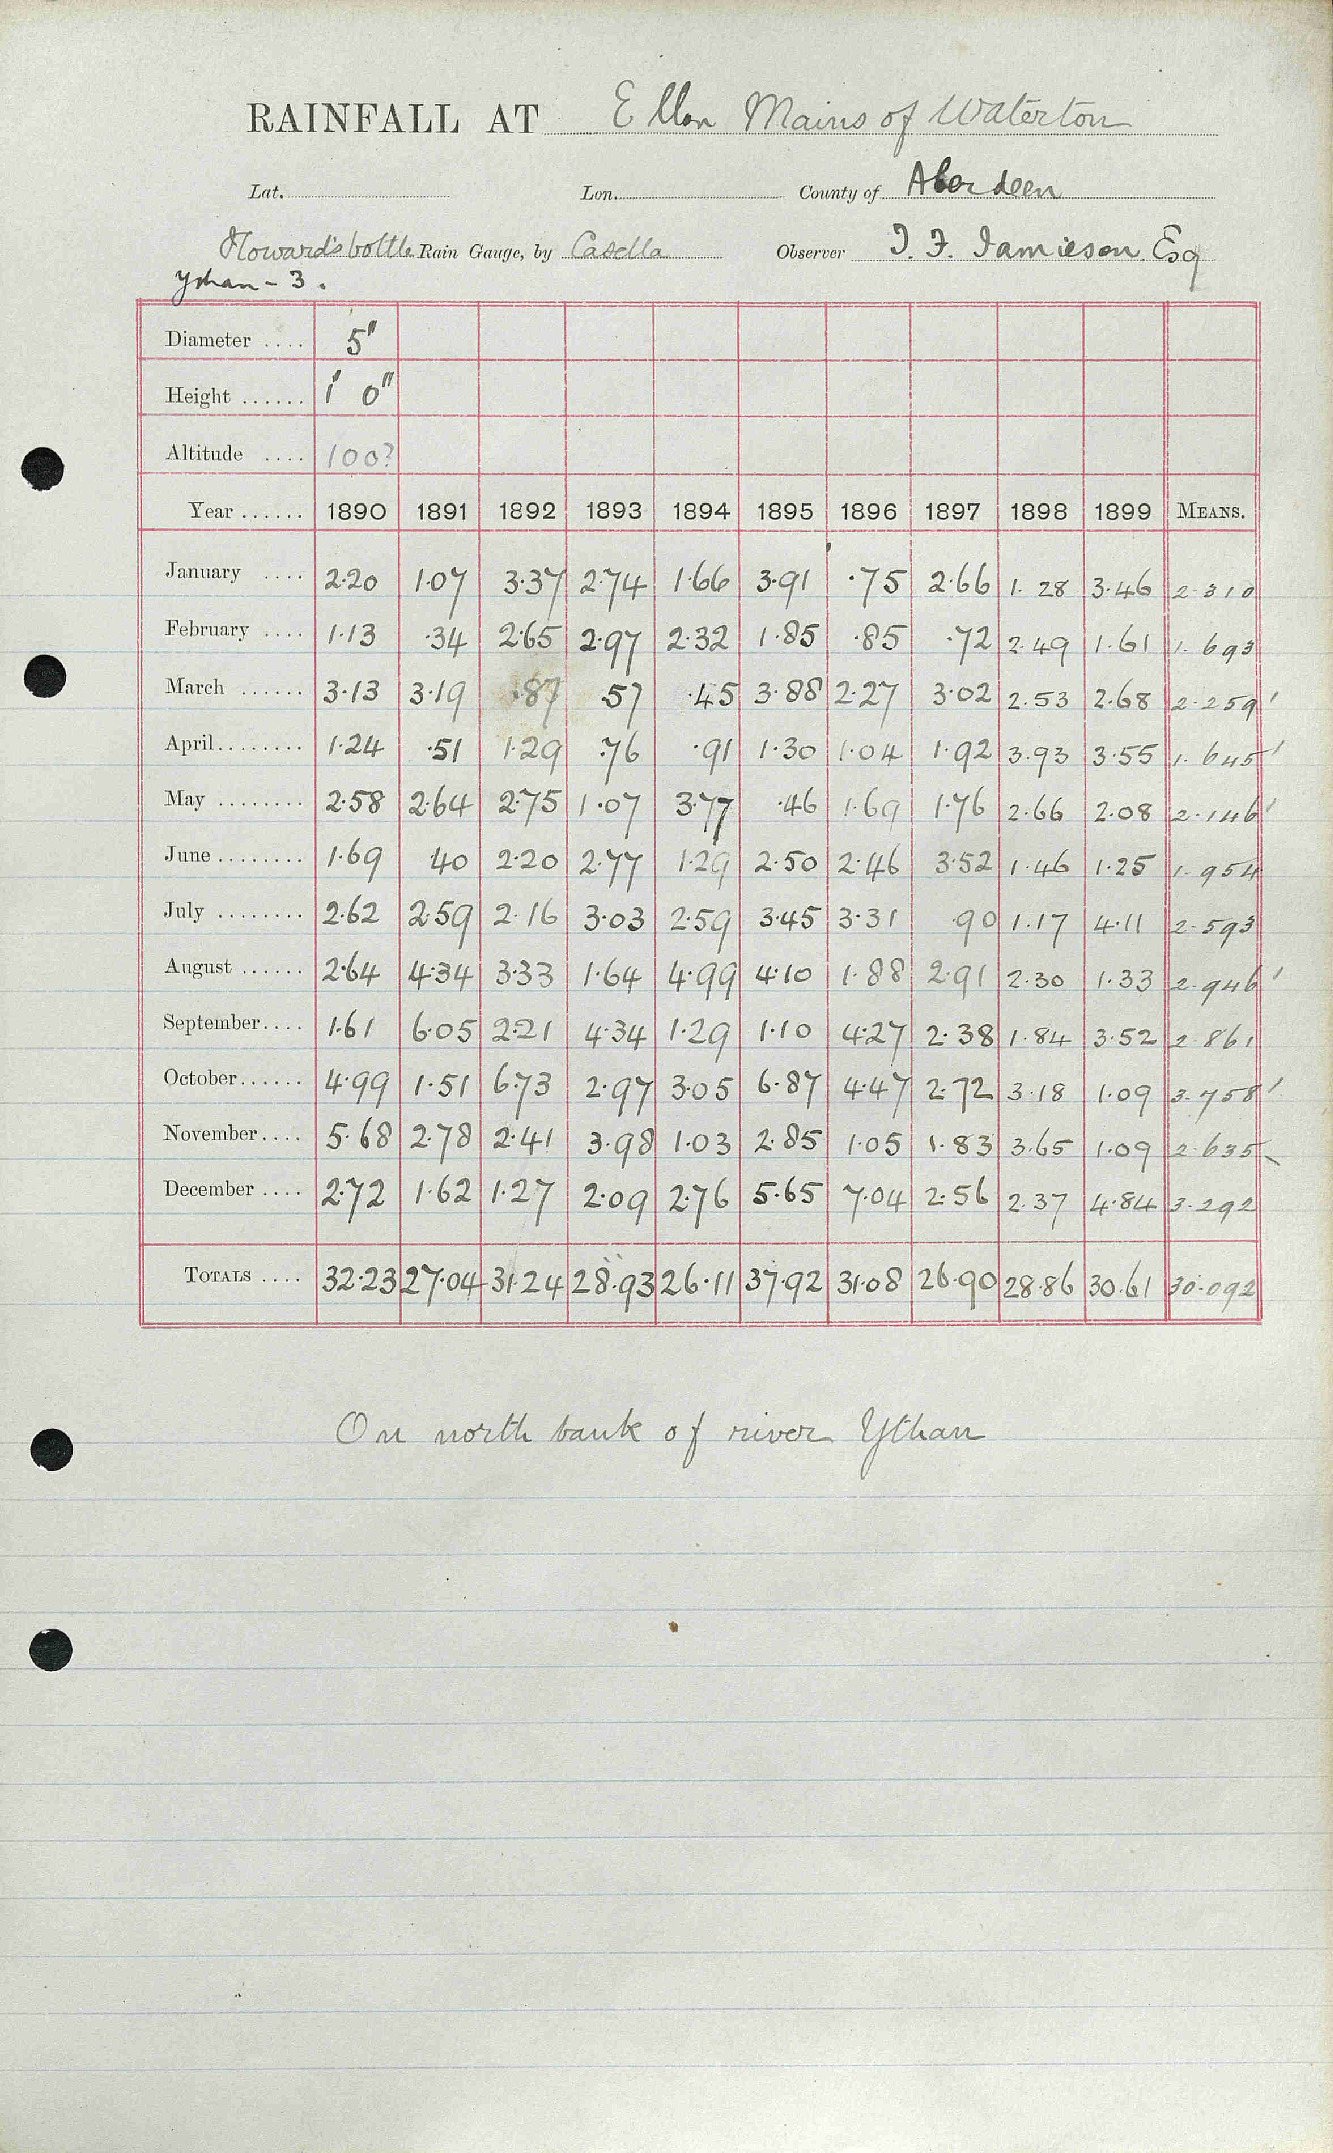 RAINFALL AT Ellon Mains of Waterton
Lat. Lon. County of Aberdeen
Howard's bottle Rain Gauge, by Casella Observer T. F. Jamieson Esq
Ythan - 3.
Diameter .... 5"
Height ...... 1' 0"
Altitude .... 100?
Year ...... 1890 1891 1892 1893 1894 1895 1896 1897 1898 1899 MEANS.
January .... 2.20 1.07 3.37 2.74 1.66 3.91 .75 2.66 1.28 3.46 2.310
February .... 1.13 .34 2.65 2.97 2.32 1.85 .85 .72 2.49 1.61 1.693
March ...... 3.13 3.19 .87 .57 .45 3.88 2.27 3.02 2.53 2.68 2.259'
April........ 1.24 .51 1.29 .76 .91 1.30 1.04 1.92 3.93 3.55 1.645'
May ........ 2.58 2.64 2.75 1.07 3.77 .46 1.69 1.76 2.66 2.08 2.146'
June ........ 1.69 40 2.20 2.77 1.29 2.50 2.46 3.52 1.46 1.25 1.954
July ........ 2.62 2.59 2.16 3.03 2.59 3.45 3.31 .90 1.17 4.11 2.593
August ...... 2.64 4.34 3.33 1.64 4.99 4.10 1.88 2.91 2.30 1.33 2.946'
September.... 1.61 6.05 2.21 4.34 1.29 1.10 4.27 2.38 1.84 3.52 2.861
October...... 4.99 1.51 6.73 2.97 3.05 6.87 4.47 2.72 3.18 1.09 3.758'
November.... 5.68 2.78 2.41 3.98 1.03 2.85 1.05 1.83 3.65 1.09 2.635
December .... 2.72 1.62 1.27 2.09 2.76 5.65 7.04 2.56 2.37 4.84 3.292
TOTALS .... 32.23 27.04 31.24 28.93 26.11 37.92 31.08 26.90 28.86 30.61 30.092
On north bank of river Ythan